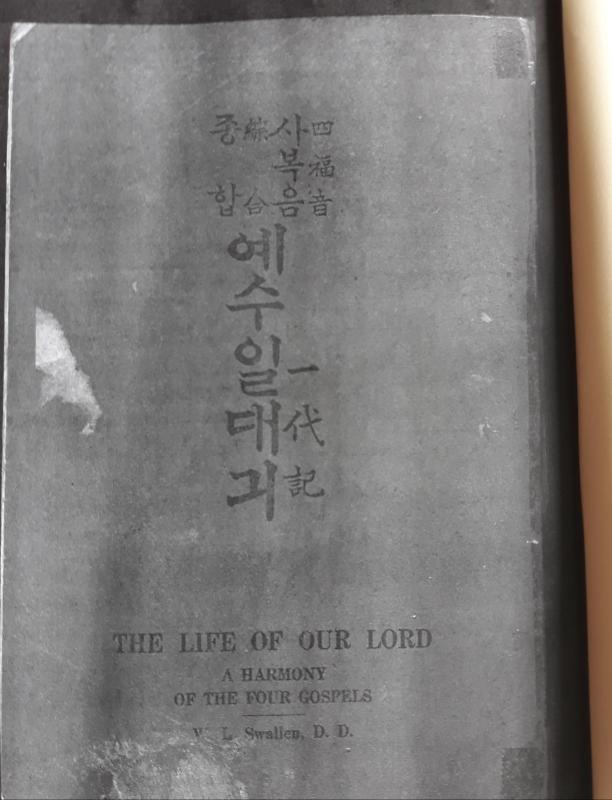 사복음 四福音
종합 綜合
예수일대긔 一代記
THE LIFE OF OUR LORD
A HARMONY
OF THE FOUR GOSPELS
L. Swallen, D. D.